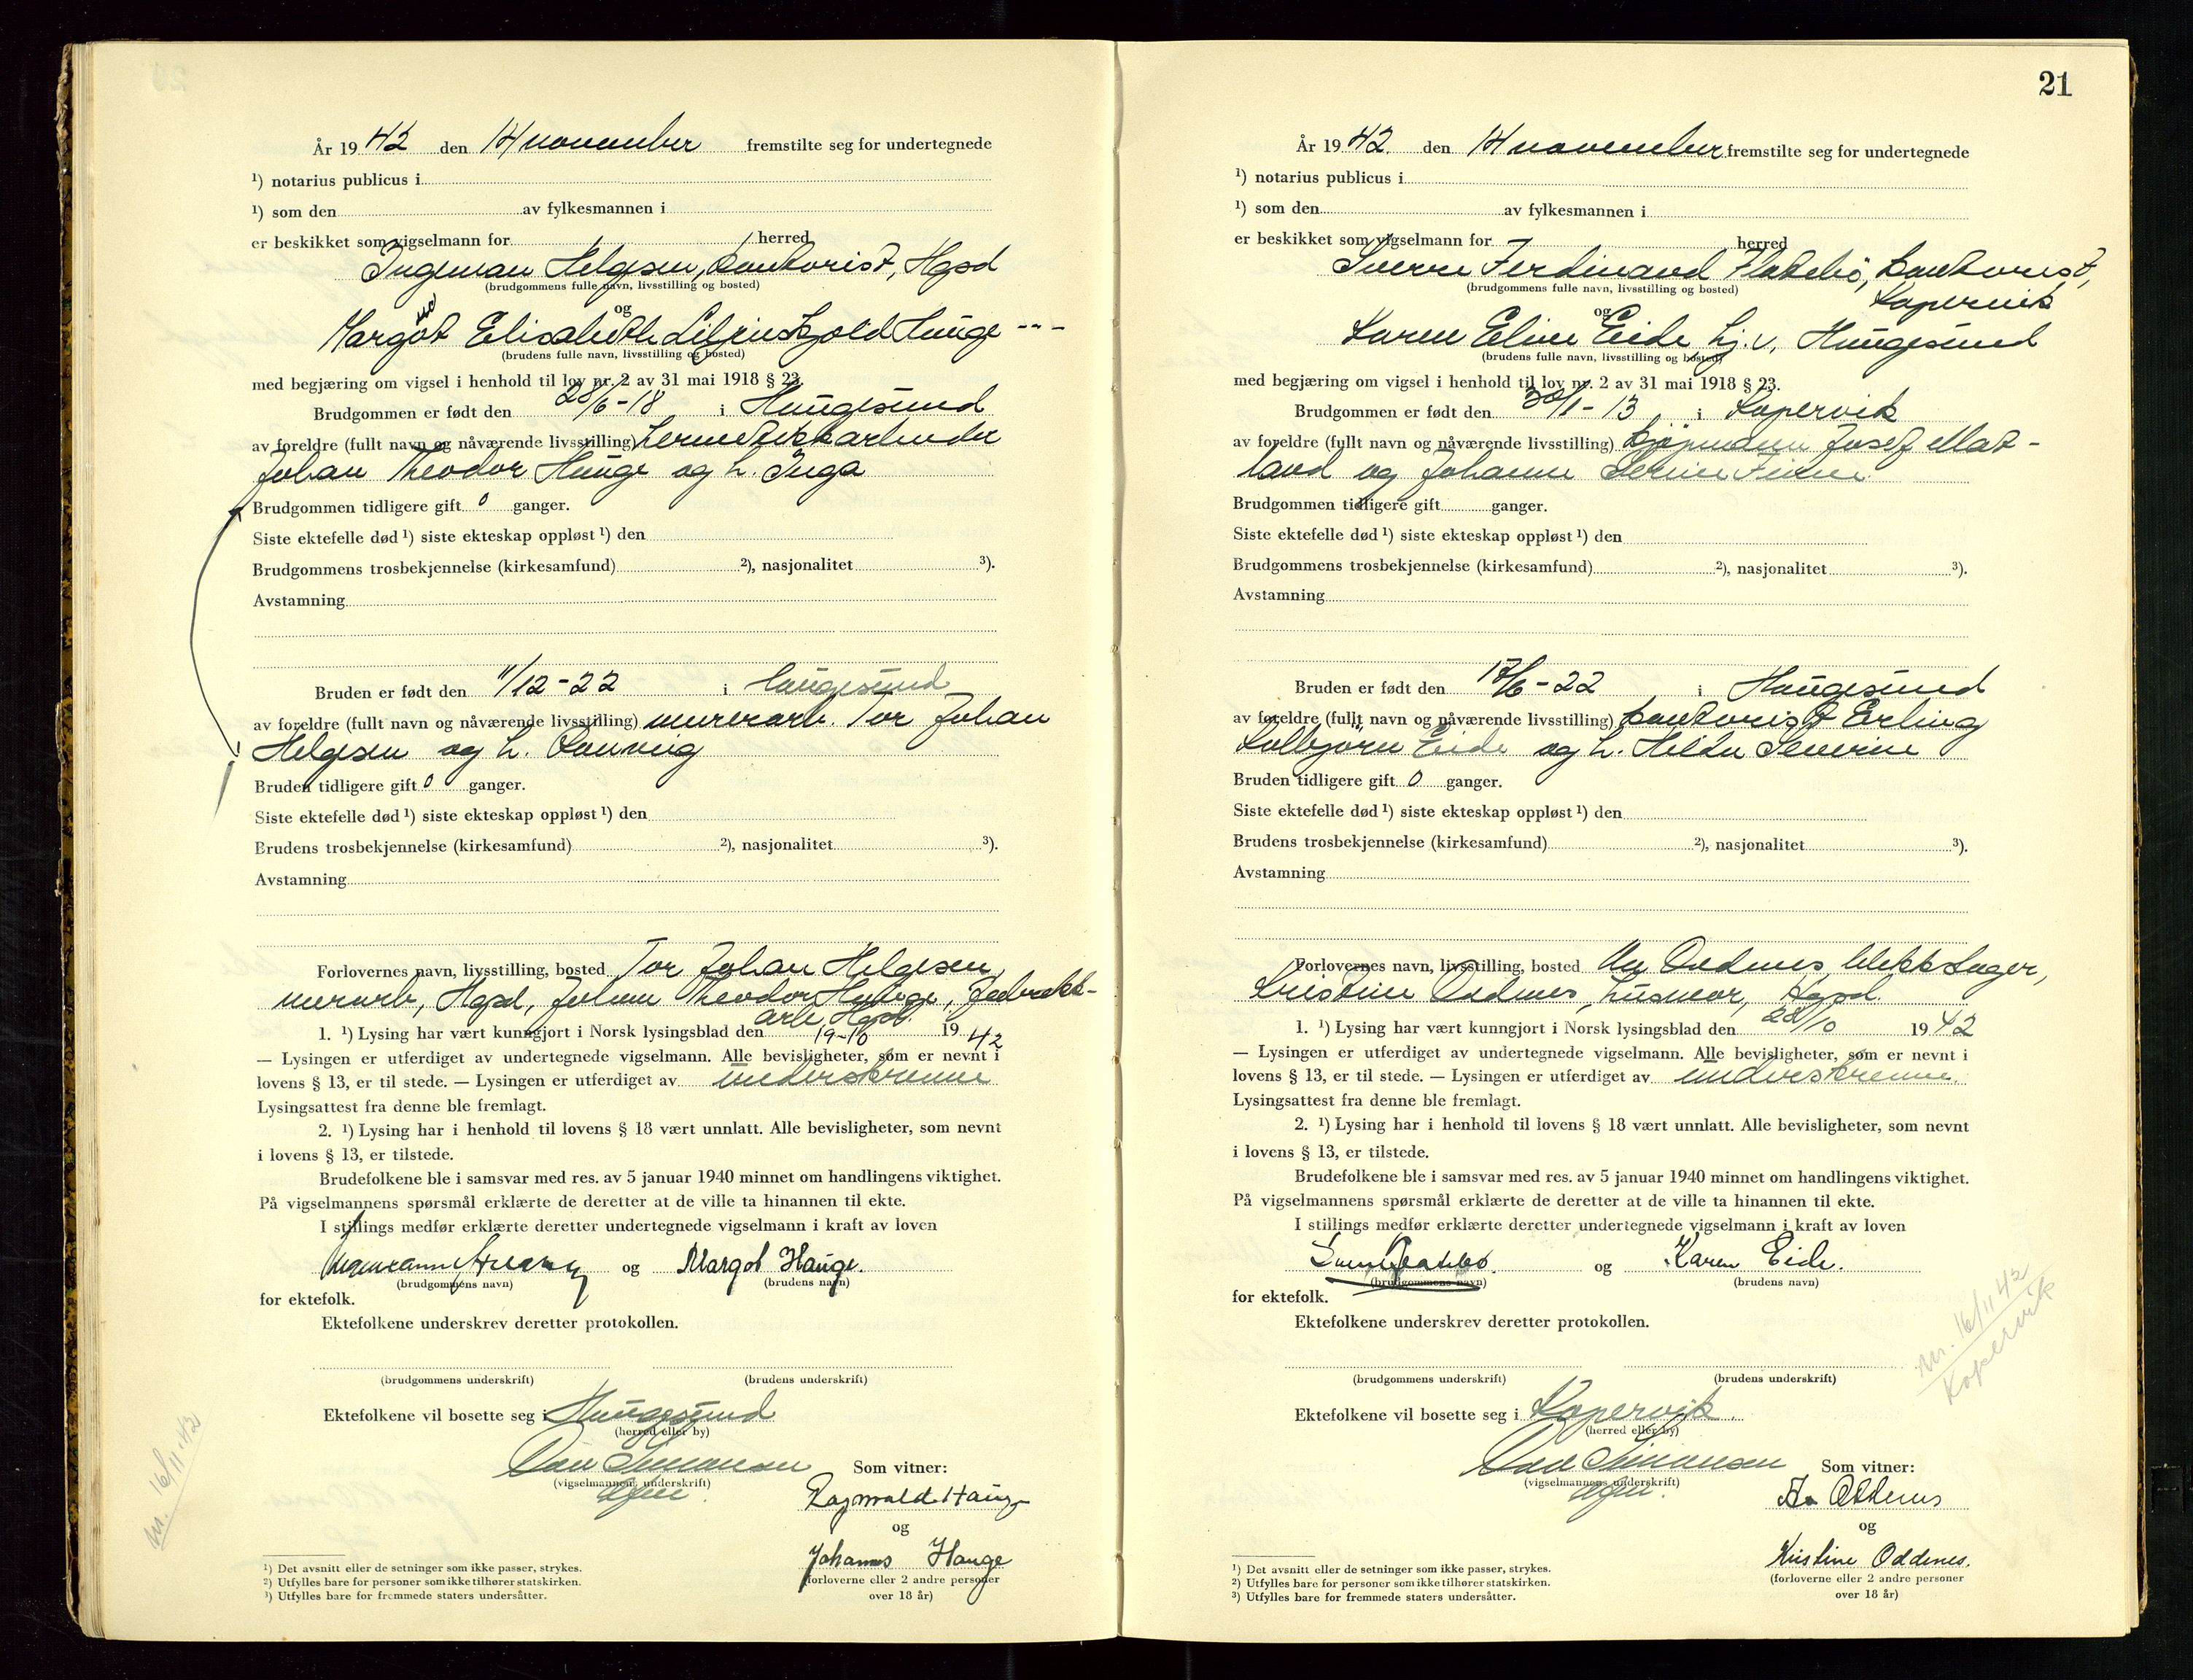 År 1942 den 14 november fremstilte seg for undertegnede
¹) notarius publicus i
¹) som den av fylkesmannen i
er beskikket som vigselmann for herred
Ingeman Helgesen, kontorist, Hgsd
(brudgommens fulle navn, livsstilling og bosted)
og
Margot Elisabeth Hauge
(brudens fulle navn, livsstilling og bosted)
med begjæring om vigsel i henhold til lov nr. 2 av 31 mai 1918 § 23.
Brudgommen er født den 28/6-18 i Haugesund
av foreldre (fullt navn og nåværende livsstilling) hermetikkarbeider
Johan Theodor Hauge og h. Inga
Brudgommen tidligere gift 0 ganger.
Siste ektefelle død ¹) siste ekteskap oppløst ¹) den
Brudgommens trosbekjennelse (kirkesamfund) ²), nasjonalitet ³).
Avstamning
Bruden er født den 11/12-22 i Haugesund
av foreldre (fullt navn og nåværende livsstilling) murerarb. Tor Johan
Helgesen og h. Rannveig
Bruden tidligere gift 0 ganger.
Siste ektefelle død ¹) siste ekteskap oppløst ¹) den
Brudens trosbekjennelse (kirkesamfund) ²), nasjonalitet ³).
Avstamning
Forlovernes navn, livsstilling, bosted Tor Johan Helgesen,
murarb, Hgsd, Johan Theodor Hauge, fabrikk-
arb Hgsd.
1. ¹) Lysing har vært kunngjort i Norsk lysingsblad den 19-10 1942
— Lysingen er utferdiget av undertegnede vigselmann. Alle bevisligheter, som er nevnt i
lovens § 13, er til stede. — Lysingen er utferdiget av underskrevne
Lysingsattest fra denne ble fremlagt.
2. ¹) Lysing har i henhold til lovens § 18 vært unnlatt. Alle bevisligheter, som nevnt
i lovens § 13, er tilstede.
Brudefolkene ble i samsvar med res. av 5 januar 1940 minnet om handlingens viktighet.
På vigselmannens spørsmål erklærte de deretter at de ville ta hinannen til ekte.
I stillings medfør erklærte deretter undertegnede vigselmann i kraft av loven
og Margot Hauge.
(brudgommens navn) (brudens navn)
for ektefolk.
Ektefolkene underskrev deretter protokollen.
(brudgommens underskrift) (brudens underskrift)
Ektefolkene vil bosette seg i Haugesund
(herred eller by)
Simonsen Som vitner:
(vigselmannens underskrift)
Ragnvald Hauge
og
Johannes Hauge
(forloverne eller 2 andre personer
over 18 år)
m. 16/11 42
¹) Det avsnitt eller de setninger som ikke passer, strykes.
²) Utfylles bare for personer som ikke tilhører statskirken.
³) Utfylles bare for fremmede staters undersåtter.
21
År 1942. den 14 november fremstilte seg for undertegnede
¹) notarius publicus i
¹) som den av fylkesmannen i
er beskikket som vigselmann for herred
Sverre Ferdinand Flatebø, kontorist,
Kopervik
(brudgommens fulle navn, livsstilling og bosted)
og
Karen Eline Eide hj. v., Haugesund
(brudens fulle navn, livsstilling og bosted)
med begjæring om vigsel i henhold til lov nr. 2 av 31 mai 1918 § 23.
Brudgommen er født den 30/1-13, i Kopervik
av foreldre (fullt navn og nåværende livsstilling) kjøpmann Josef Mat-
land og Johanne Serine
Brudgommen tidligere gift ganger.
Siste ektefelle død ¹) siste ekteskap oppløst ¹) den
Brudgommens trosbekjennelse (kirkesamfund) ²), nasjonalitet ³).
Avstamning
Bruden er født den /6-22 i Haugesund
av foreldre (fullt navn og nåværende livsstilling) kontorist Erling
Kolbjørn Eide og h. Hilda Severine
Bruden tidligere gift 0 ganger.
Siste ektefelle død ¹) siste ekteskap oppløst ¹) den
Brudens trosbekjennelse (kirkesamfund) ²), nasjonalitet ³).
Avstamning
Forlovernes navn, livsstilling, bosted Oddenes, blikkslager,
Kristine Oddenes, husmor, Hgsd.
1. ¹) Lysing har vært kunngjort i Norsk lysingsblad den 22/10 1942
— Lysingen er utferdiget av undertegnede vigselmann. Alle bevisligheter, som er nevnt i
lovens § 13, er til stede. — Lysingen er utferdiget av underskrevne.
Lysingsattest fra denne ble fremlagt.
2. ¹) Lysing har i henhold til lovens § 18 vært unnlatt. Alle bevisligheter, som nevnt
i lovens § 13, er tilstede.
Brudefolkene ble i samsvar med res. av 5 januar 1940 minnet om handlingens viktighet.
På vigselmannens spørsmål erklærte de deretter at de ville ta hinannen til ekte.
I stillings medfør erklærte deretter undertegnede vigselmann i kraft av loven
og Karen Eide.
(brudgommens navn) (brudens navn)
for ektefolk.
Ektefolkene underskrev deretter protokollen.
m. 16/11 42
Kopervik
(brudgommens underskrift) (brudens underskrift)
Ektefolkene vil bosette seg i Kopervik.
(herred eller by)
Simonsen Som vitner:
(vigselmannens underskrift)
Oddenes
og
Kristine Oddenes.
(forloverne eller 2 andre personer
over 18 år)
¹) Det avsnitt eller de setninger som ikke passer, strykes.
²) Utfylles bare for personer som ikke tilhører statskirken.
³) Utfylles bare for fremmede staters undersåtter.